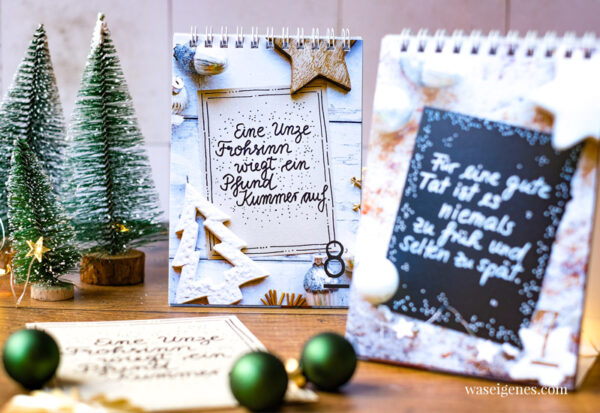 Eine Unze
Frohsinn
wiegt ein
Pfund
Kummer auf
8
Für eine gute
Tat ist es
niemals
zu früh und
selten zu spät.
Eine Unze
Frohsinn
wiegt ein
Pfund
Kummer
waseigenes.com